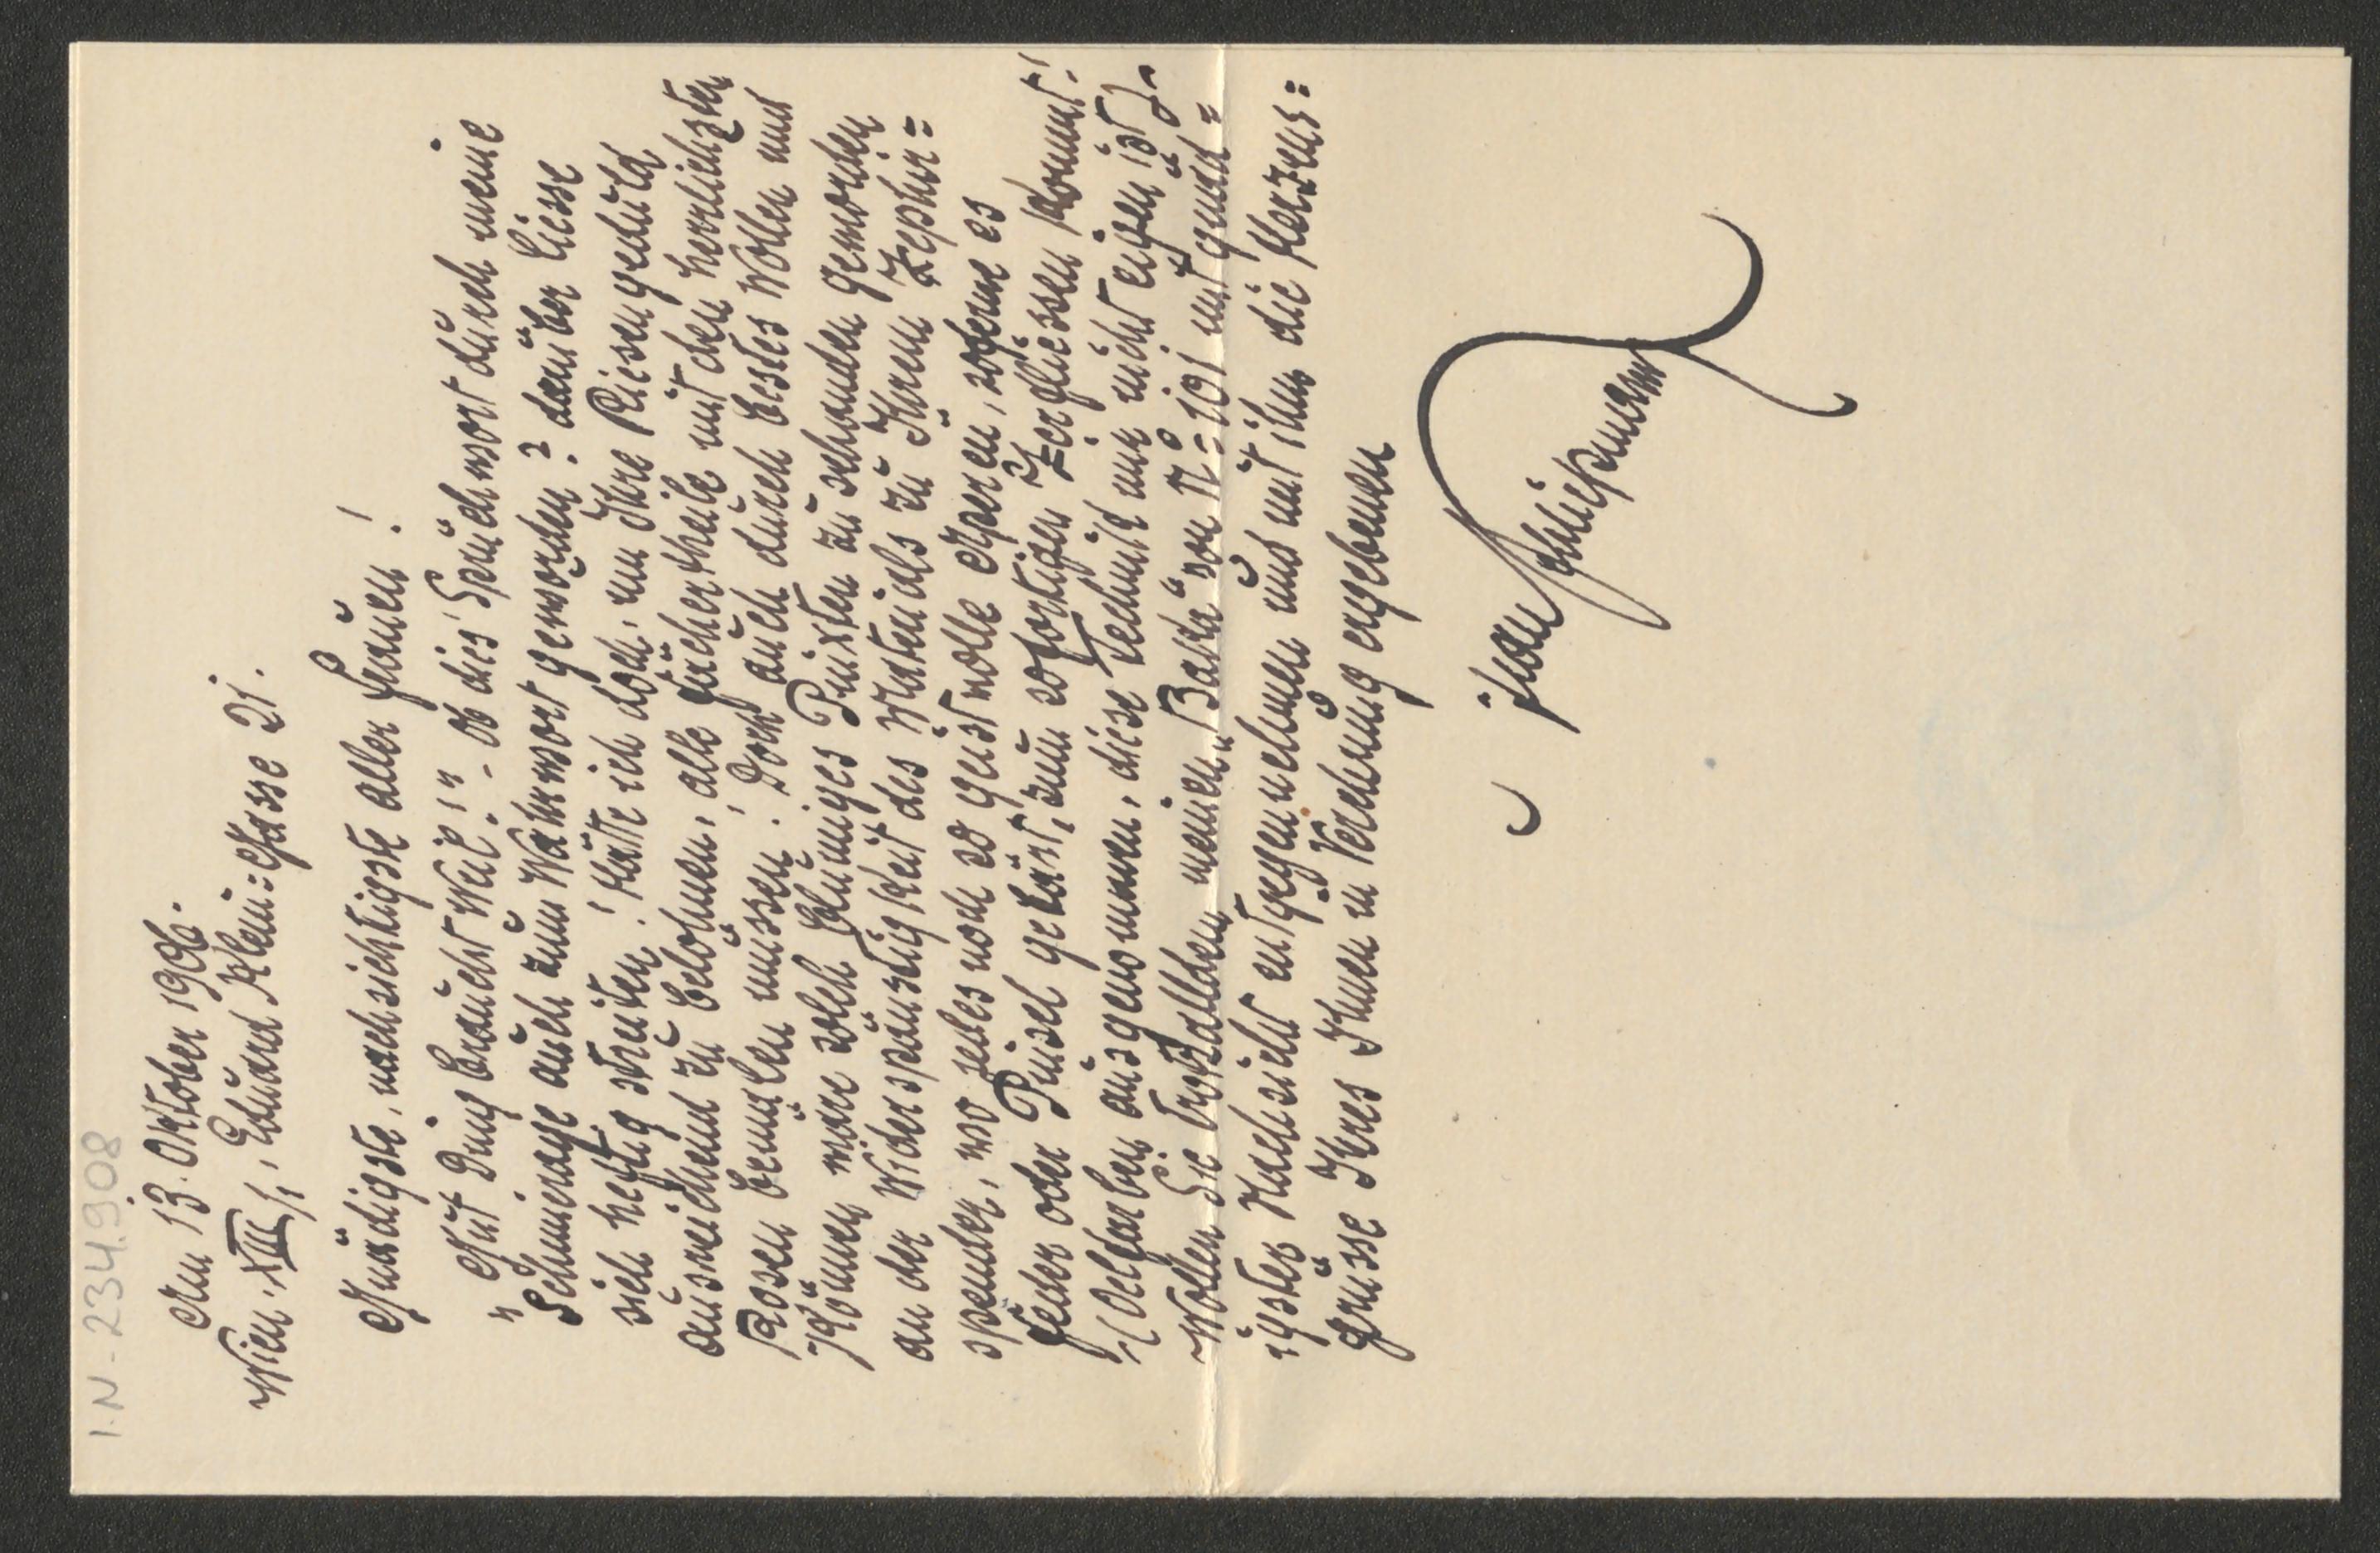 I.N-234.908
Am 13. Oktober 1906.
Wien, XIII/1, Eduard Klein=Gasse 21.
Gnädigste, nachsichtigste aller Frauen!
„Gut Ding braucht Weil'!" - ob dies Sprüchwort durch meine
Schmierage auch zum Wahrwort geworden? darüber liesse
sich heftig streiten! Hätte ich doch, um Ihre Riesengeduld
ausreichend zu belohnen, alle Fächertheile mit den herrlichsten
Rosen bemalen müssen! Doch auch durch bestes Wollen und
Können wäre solch blumiges Düften zu schanden geworden
an der Widerspänstigkeit des Materials zu Ihrem Zephir=
spender, wo jedes noch so geistvolle Aperçu, soferne es
Feder oder Pinsel gebärt, zum sofortigen Zerfliessen kommt!
(Oelfarben ausgenommen, diese Technik mir nicht eigen ist).
Wollen Sie trotzalldem meinen Batzen von N=101 mit gnäd=
igster Nachsicht entgegennehmen und mit ihm die Herzens=
grüsse Ihres Ihnen in Verehrung ergebenen